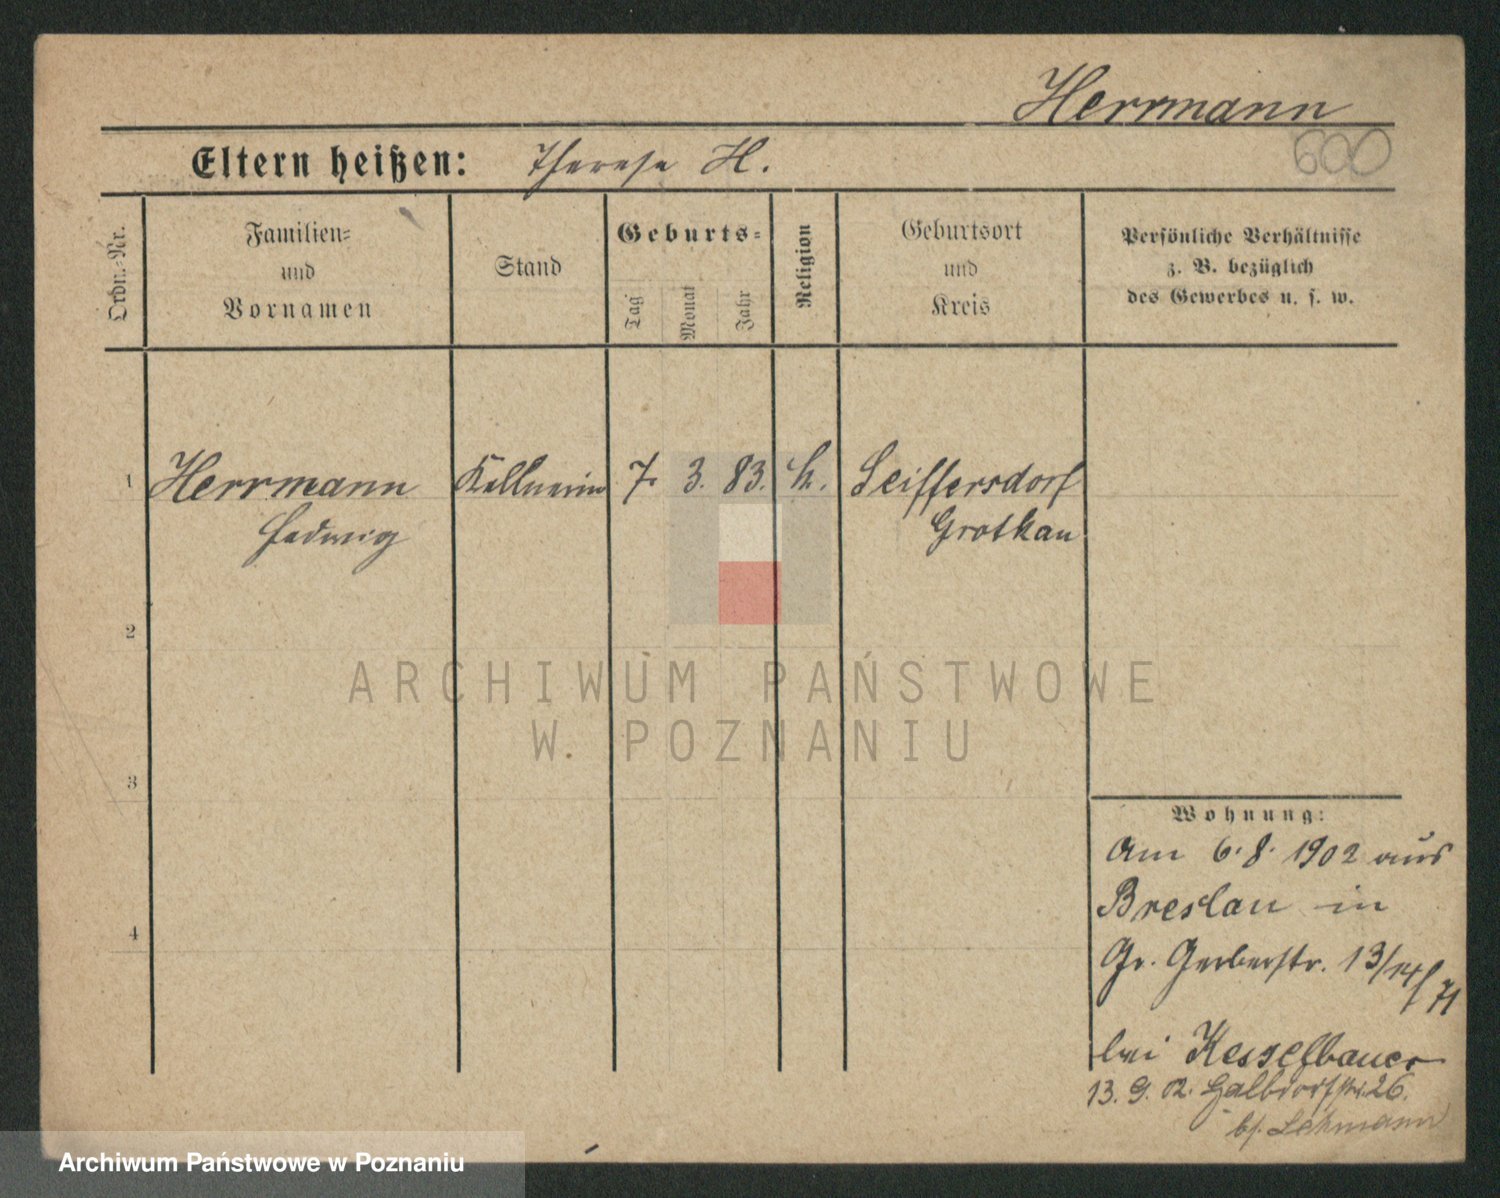 Herrmann
600
Eltern heißen: Therese H.
Ordn.-Nr.
Familien-
und
Vornamen
Stand
Geburts-
Tag
Monat
Jahr
Religion
Geburtsort
und
Kreis
Persönliche Verhältnisse
z. B. bezüglich
des Gewerbes u. s. w.
1 Herrmann Kellnerin 7. 3. 83. k. Seiffersdorf
Hedwig Grotkau
2
3
4
ARCHIWUM PAŃSTWOWE
W POZNANIU
Wohnung:
Am 6.8. 1902 aus
Breslau in
Gr. Gerberstr. 13/14/71
bei Kesselbauer
13. 9. 02. Halbdorfstr. 26.
bei Lehmann
Archiwum Państwowe w Poznaniu